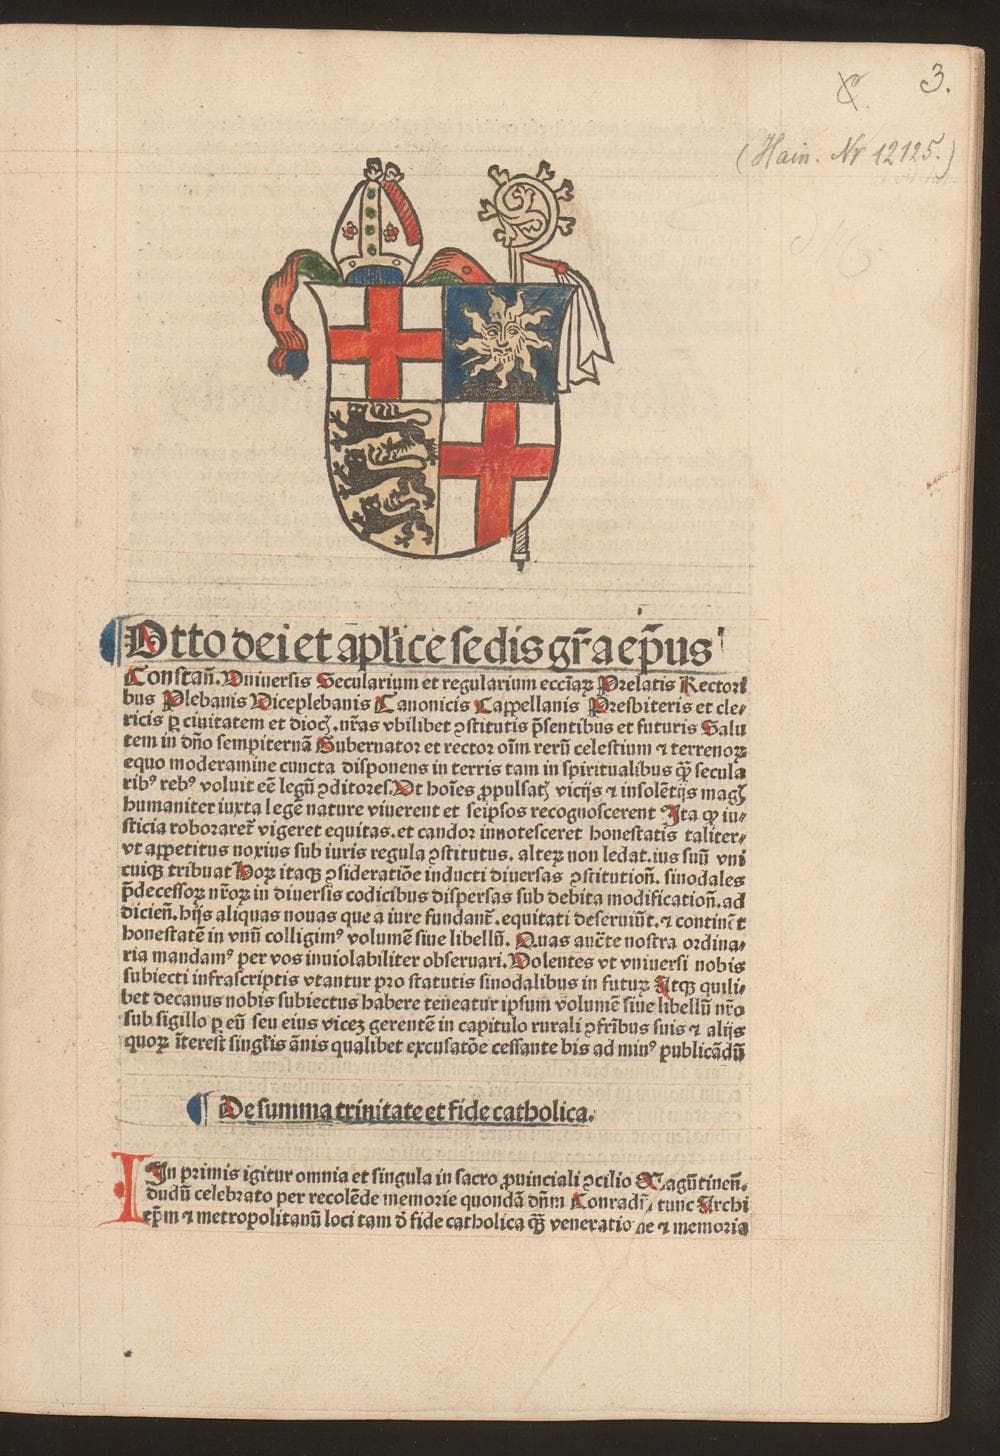 3.
(Hain. Nr 12125.)
Otto dei et aplice sedis gr̃a ep̃us
Constañ. Uniuersis Secularium et regularium eccĩaꝝ Prelatis Rectori
bus Plebanis Viceplebanis Canonicis Cappellanis Presbiteris et cle⸗
ricis ꝑ ciuitatem et dioc̃. nr̃as vbilibet ꝯstitutis p̃sentibus et futuris Salu
tem in dño sempiternã Gubernator et rector oĩm rerũ celestium ⁊ terrenoꝝ
equo moderamine cuncta disponens in terris tam in spiritualibus qᷓꝫ secula
ribꝰ rebꝰ voluit eẽ legũ ꝯditores. Ut hoĩes ꝓpulsatꝭ vicijs ⁊ insolẽtijs magꝭ
humaniter iuxta legẽ nature viuerent et seipsos recognoscerent Ita ꝙ iu⸗
sticia roboraret̃ vigeret equitas. et candor innotesceret honestatis taliter⸗
vt appetitus noxius sub iuris regula ꝯstitutus. alteꝝ non ledat. ius suũ vni
cuiqꝫ tribuat Hoꝝ itaqꝫ ꝯsideratiõe inducti diuersas ꝯstitutioñ. sinodales
p̃decessoꝝ nr̃oꝝ in diuersis codicibus dispersas sub debita modificatioñ. ad
dicieñ. hijs aliquas nouas que a iure fundant̃. equitati deseruiũt. ⁊ continẽt
honestatẽ in vnũ colligimꝰ volumẽ siue libellũ. Quas auc̃te nostra ordina⸗
ria mandamꝰ per vos inuiolabiliter obseruari. Volentes vt vniuersi nobis
subiecti infrascriptis vtantur pro statutis sinodalibus in futuꝝ Atqꝫ quili⸗
bet decanus nobis subiectus habere teneatur ipsum volumẽ siue libellũ nr̃o
sub sigillo ꝑ eũ seu eius viceꝫ gerentẽ in capitulo rurali ꝯfr̃ibus suis ⁊ alijs
quoꝝ ĩterest singl̃is ãnis qualibet excusatõe cessante bis ad minꝰ publicãdũ
De summa trinitate et fide catholica.
In primis igitur omnia et singula in sacro ꝓuinciali ꝯcilio Magũtineñ.
dudũ celebrato per recolẽde memorie quondã dñm Conradũ, tunc Archi
ep̃m ⁊ metropolitanũ loci tam d̃ fide catholica qᷓꝫ veneratione ⁊ memoria